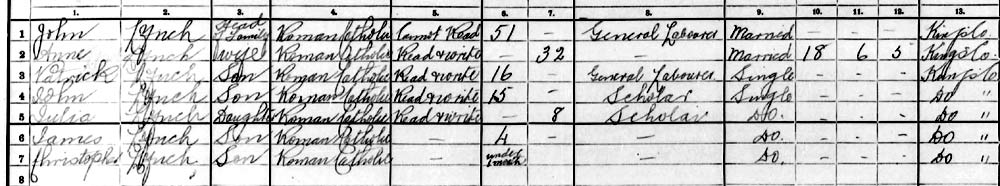 1. 2. 3. 4. 5. 6. 7. 8. 9. 10. 11. 12. 13.
1 John Lynch Head of Family Roman Catholic Cannot Read 51 — General Labourer Married - - - Kings Co
2 Anne Lynch Wife Roman Catholic Read & write — 32 — Married 18 6 5 Kings Co
3 Patrick Lynch Son Roman Catholic Read & write 16 — General Labourer Single - - - Kings Co
4 John Lynch Son Roman Catholic Read & write 15 — Scholar Single - - - Do "
5 Julia Lynch Daughter Roman Catholic Read & write — 8 Scholar Do. - - - Do "
6 James Lynch Son Roman Catholic — 4 — — Do. - - - Do "
7 Christopher Lynch Son Roman Catholic — under 1 month — — Do. - - - Do "
8